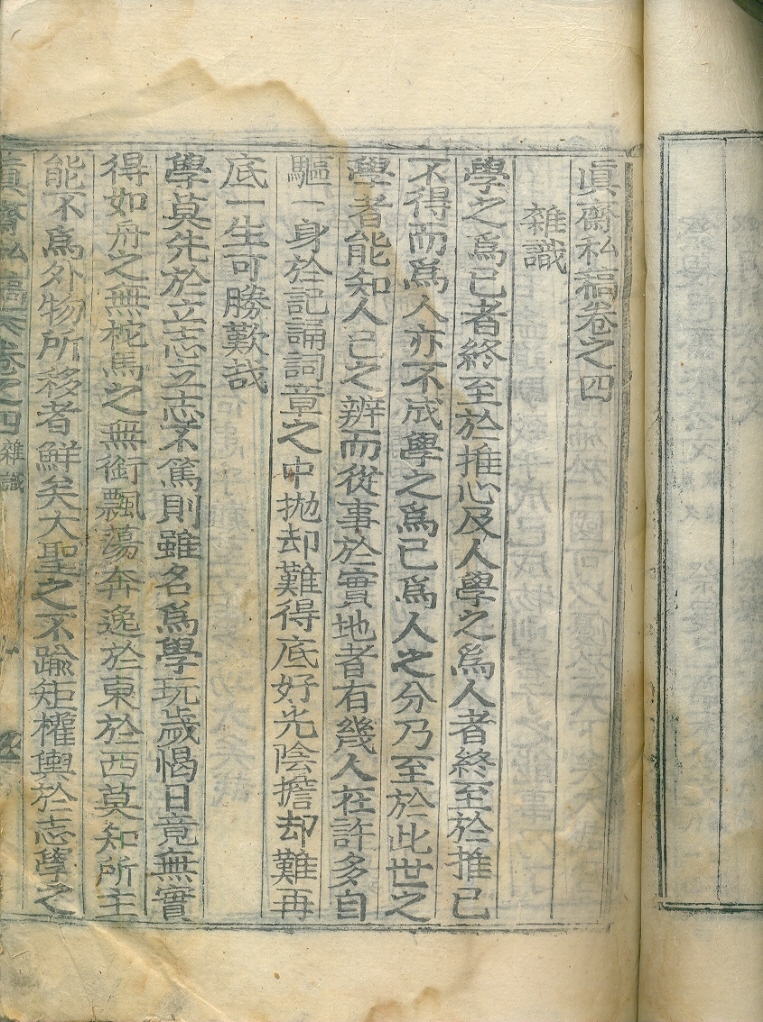 眞齋私稿卷之四
雜識
學之爲己者終至於推心及人學之爲人者終至於推己
不得而爲人亦不成學之爲己爲人之分乃至於此世之
學者能知人己之辨而從事於實地者有幾人在許多自
驅一身於記誦詞章之中抛却難得底好光陰擔却難再
底一生可勝歎哉
學莫先於立志立志不篤則雖名爲學玩歲愒日竟無實
得如舟之無柁馬之無銜飄蕩奔逸於東於西莫知所主
能不爲外物所移者鮮矣大聖之不踰矩權輿於志學之
眞齋私稿 卷之四 雜識